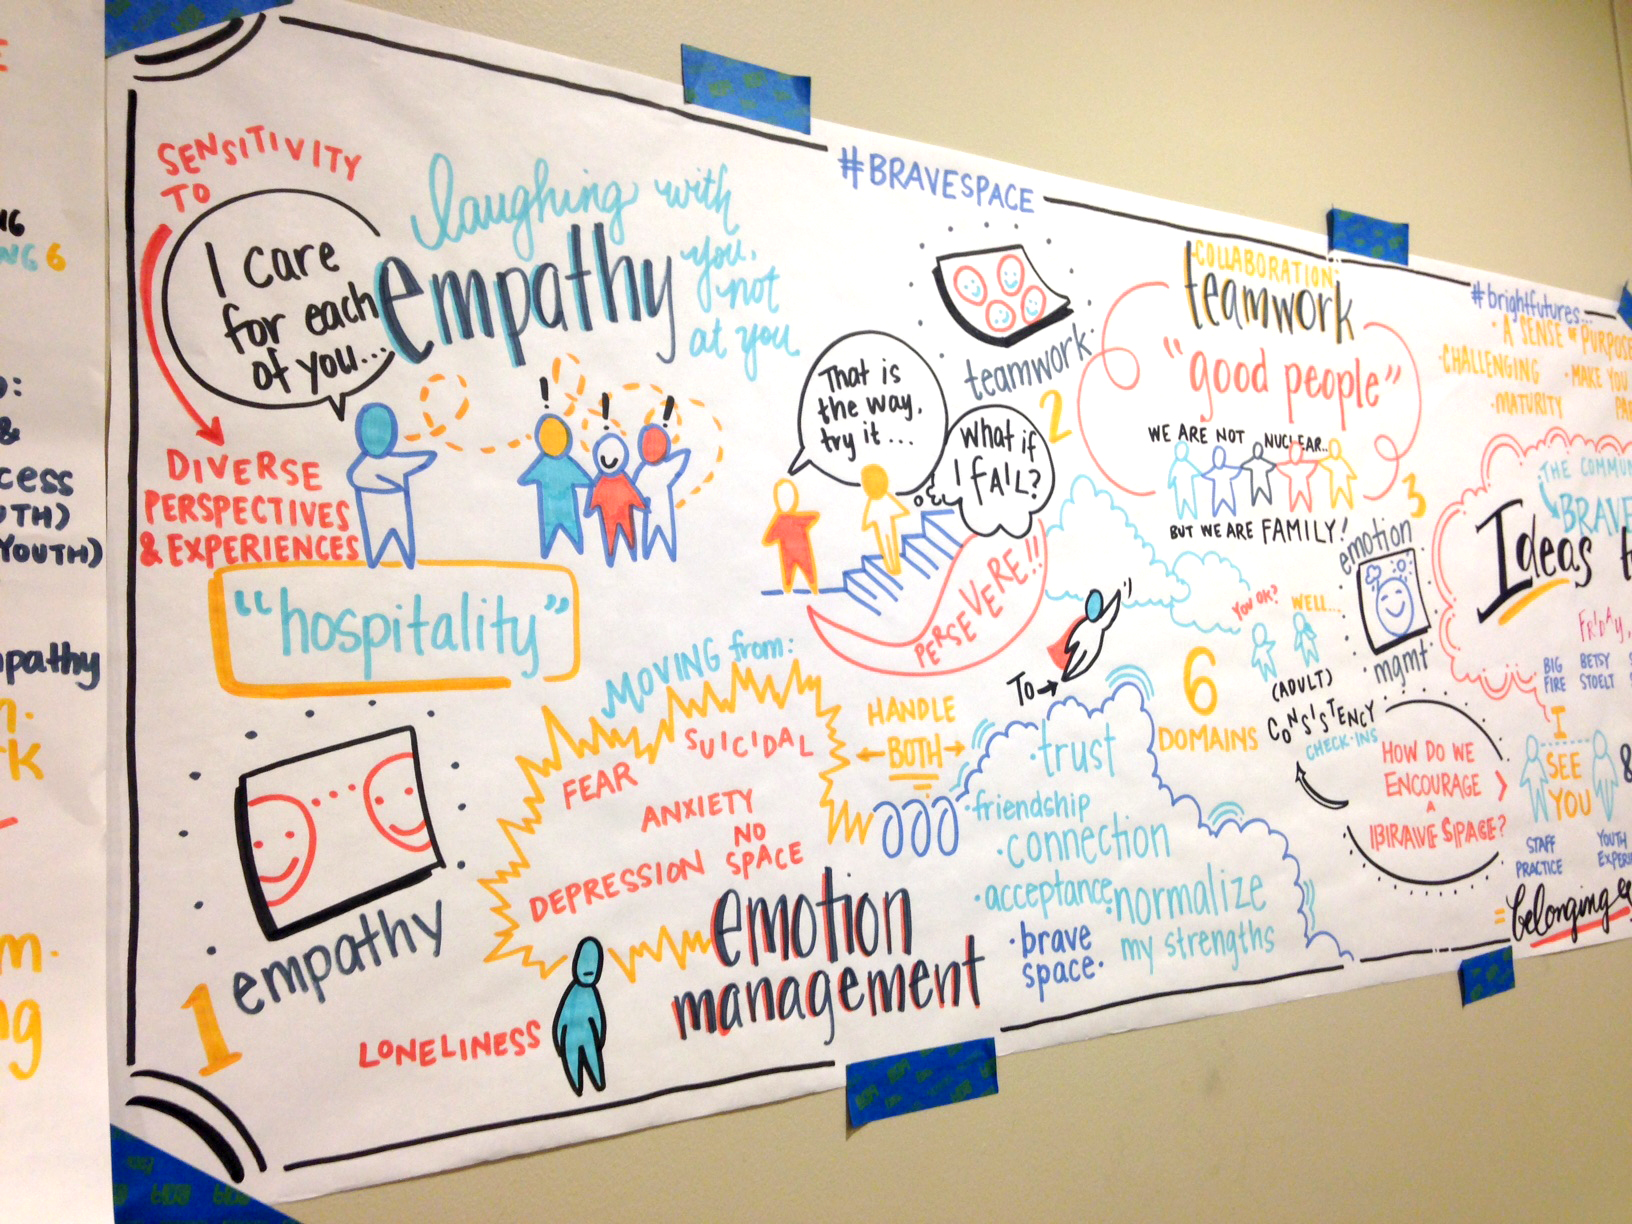 SENSITIVITY
TO
I care
for each
of you...
DIVERSE
PERSPECTIVES
& EXPERIENCES
laughing with
you,
not
at you
empathy
! ! !
"hospitality"
1
empathy
#BRAVESPACE
teamwork
2
That is
the way,
try it...
What if
I FAIL?
PERSEVERE!!
MOVING from:
SUICIDAL
FEAR
ANXIETY
NO
SPACE
DEPRESSION
LONELINESS
emotion
management
HANDLE
BOTH
TO
trust
friendship
connection
acceptance
normalize
my strengths
brave
space
COLLABORATION
teamwork
"good people"
WE ARE NOT NUCLEAR...
BUT WE ARE FAMILY!
3
emotion
mgmt
YOU OK?
WELL...
6
DOMAINS
(ADULT)
CONSISTENCY
CHECK-INS
HOW DO WE
ENCOURAGE
A
BRAVE SPACE?
#brightfutures...
A SENSE OF PURPOSE
CHALLENGING
MAKE YOU
MATURITY
THE
BRAVE
Ideas
FRIDAY,
BIG
FIRE
BETSY
STOELT
I
SEE
YOU
&
STAFF
PRACTICE
YOUTH
= belonging
NG 6
&
cess
UTH)
YOUTH)
mpathy